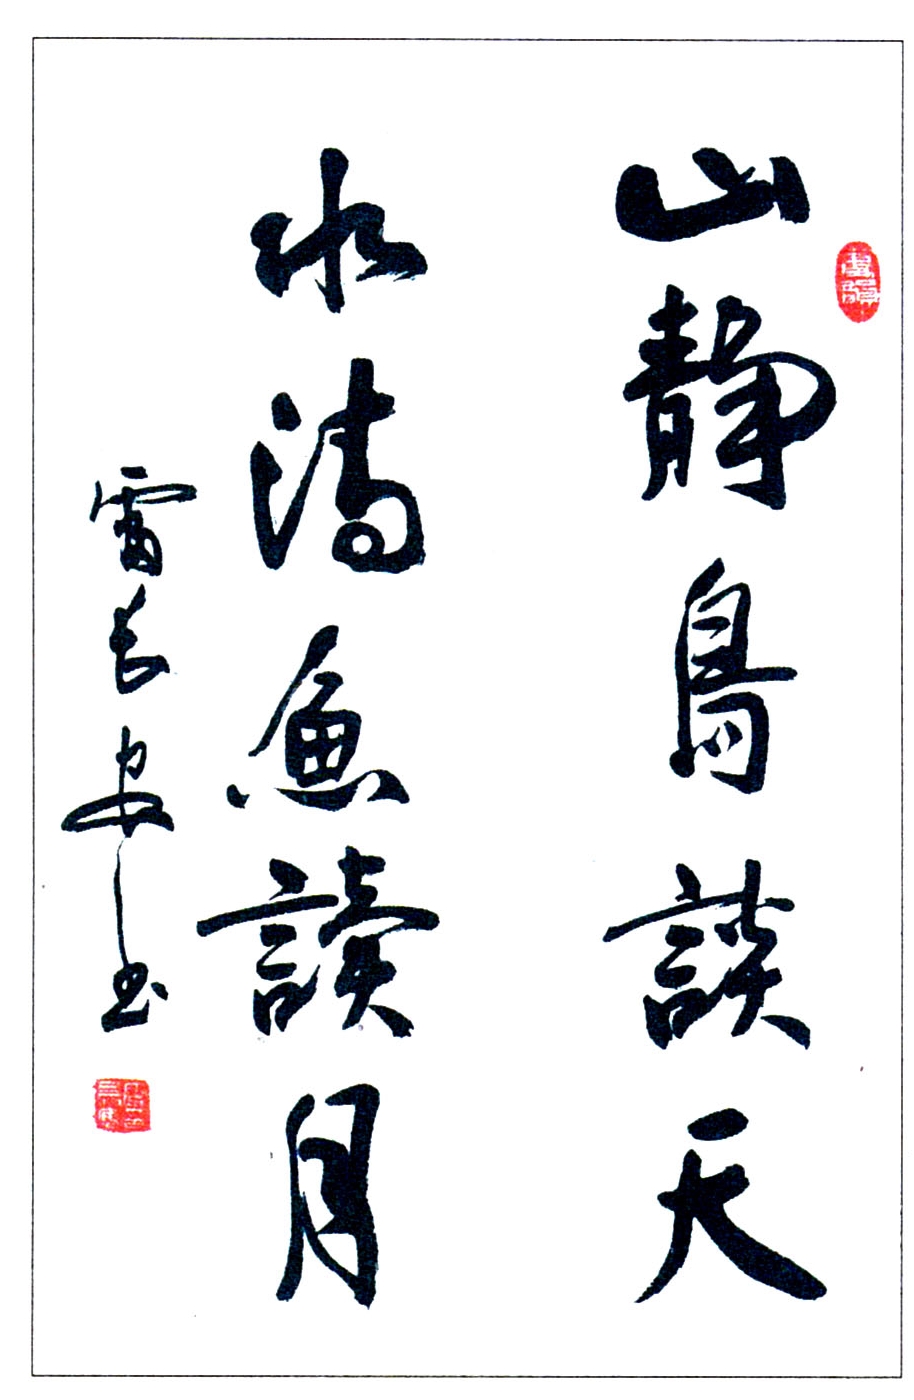 山靜鳥談天
水清魚讀月
雷長安書